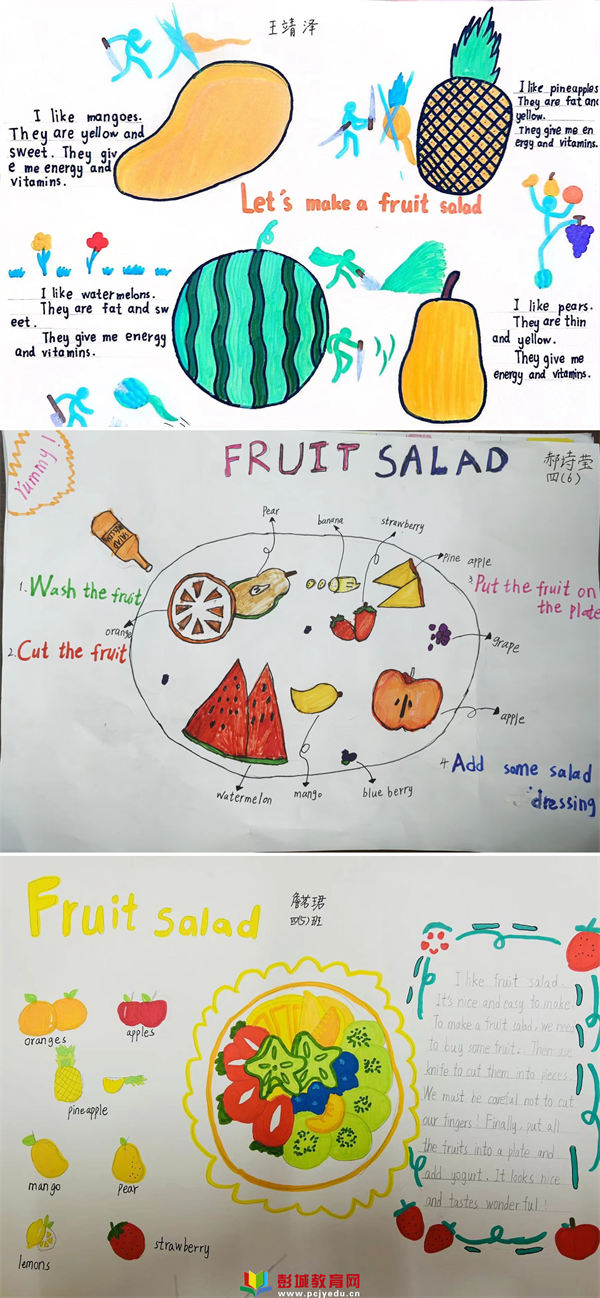 王靖泽
I like mangoes.
They are yellow and
sweet. They giv
e me energy and
vitamins.
I like pineapples
They are fat and
yellow.
They give me en
ergy and vitamins.
Let's make a fruit salad
I like watermelons.
They are fat and sw
eet.
They give me energy
and vitamins.
I like pears.
They are thin
and yellow.
They give me
energy and vitamins.
Yummy!
FRUIT SALAD
郝诗莹
四(6)
SALAD
Pear
banana
strawberry
pine apple
1. Wash the fruit
3. Put the fruit on
the plate
orange
grape
2. Cut the fruit
apple
4 Add some salad
dressing
watermelon
mango
blue berry
Fruit salad
四(5)班
oranges
apples
pineapple
mango
pear
lemons
strawberry
I like fruit salad.
It's nice and easy to make.
To make a fruit salad, we need
to buy some fruits. Then use
knife to cut them into pieces.
We must be careful not to cut
our fingers! Finally, put all
the fruits into a plate and
add yogurt. It looks nice
and tastes wonderful!
彭城教育网
www.pcjyedu.cn